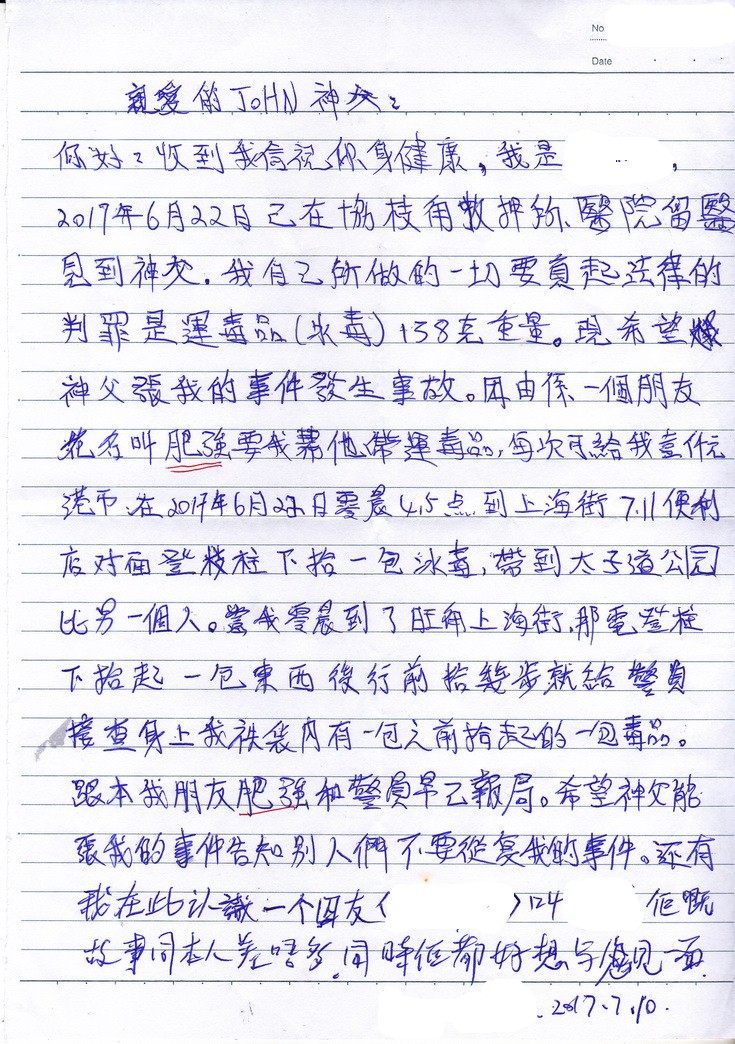 No
Date
親愛的JOHN神父：
你好：收到我信祝你身健康，我是 ，
2017年6月22日已在荔枝角收押所、醫院留醫
見到神父。我自己所做的一切要負起法律的
判罪是運毒品(冰毒)+38克重量。現希望
神父張我的事件發生事故。因由係一個朋友
花名叫肥強要我幫他帶運毒品，每次可給我壹仟元
港币，在2017年6月 日零晨4.15点到上海街7.11便利
店对面登枝柱下拾一包冰毒，帶到太子道公园
比另一個人。當我零晨到了旺角上海街，那電登柱
下拾起一包東西後行前拾幾步就給警員
搜查身上我袂袋內有一包之前拾起的一包毒品。
跟本我朋友肥強和警員早已報局。希望神父能
張我的事件告知別人們不要從复我的事件。还有
我在此认識一个囚友( )口4 佢嘅
故事同本人差唔多，同時佢都好想与 見一面.
2017.7.10.